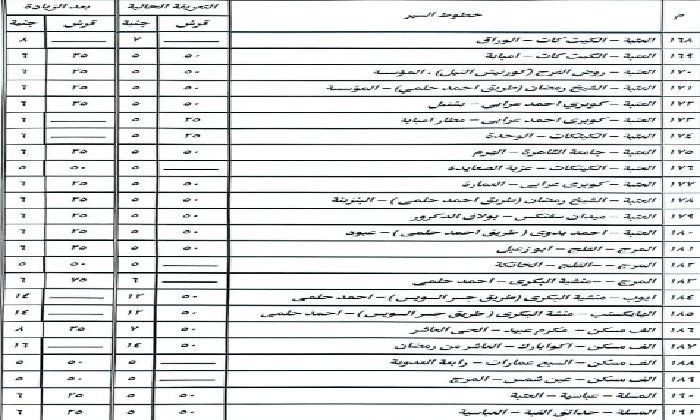 م خطوط السير التعريفة الحالية بعد الزيادة
قرش جنية قرش جنية
١٦٨ العتبة - الكيت كات - الوراق ـــــ ٧ ـــــ ٨
١٦٩ العتبة - الكيت كات - امبابة ٥٠ ٥ ٢٥ ٦
١٧٠ العتبة - روض الفرج (كورنيش النيل) - المؤسسة ٥٠ ٥ ٢٥ ٦
١٧١ العتبة - الشيخ رمضان (طريق احمد حلمي) - المؤسسة ٥٠ ٥ ٢٥ ٦
١٧٢ العتبة - كوبري احمد عرابى - بشتيل ٥٠ ٥ ٢٥ ٦
١٧٣ العتبة - كوبري احمد عرابى - مطار امبابة ٢٥ ٥ ـــــ ٦
١٧٤ العتبة - الكيتكات - الوحدة ٢٥ ٥ ـــــ ٦
١٧٥ العتبة - جامعة القاهرة - الهرم ٥٠ ٥ ٢٥ ٦
١٧٦ العتبة - الكيتكات - عزبة الصعايدة ـــــ ٥ ٥٠ ٥
١٧٧ العتبة - كوبرى عرابى - المنارة ٥٠ ٥ ٢٥ ٦
١٧٨ العتبة - الشيخ رمضان (طريق احمد حلمي) - ٥٠ ٥ ٢٥ ٦
١٧٩ العتبة - ميدان سفنكس - بولاق الدكرور ٥٠ ٥ ٢٥ ٦
١٨٠ العتبة - احمد بدوى (طريق احمد حلمي) - عبود ٥٠ ٥ ٢٥ ٦
١٨١ المرج - القلج - ابو زعبل ٥٠ ٥ ٢٥ ٦
١٨٢ المرج - القلج - الخانكة ـــــ ٥ ٥٠ ٥
١٨٣ المرج - منشية البكرى - احمد حلمى ـــــ ٦ ٧٥ ٦
١٨٤ ايوب - منشية البكرى (طريق جسر السويس) - احمد حلمى ٥٠ ١٢ ـــــ ١٤
١٨٥ - منشية البكرى (طريق جسر السويس) - احمد حلمى ٥٠ ١٢ ـــــ ١٤
١٨٦ الف مسكن - مكرم عبيد - الحى العاشر ٥٠ ٧ ٢٥ ٨
١٨٧ الف مسكن - - العاشر من رمضان ٥٠ ١٤ ـــــ ١٦
١٨٨ الف مسكن - السبع عمارات - رابعة العدوية ـــــ ٥ ٥٠ ٥
١٨٩ الف مسكن - عين شمس - المرج ـــــ ٥ ٥٠ ٥
١٩٠ المسلة - عباسية - العتبة ٥٠ ٥ ٢٥ ٦
١٩١ المسلة - حدائق القبة - العباسية ٥٠ ٥ ٢٥ ٦